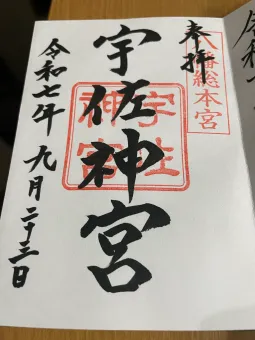 八幡総本宮
奉拝
宇佐神宮
宇佐
神宮
令和七年 九月二十三日
令和七